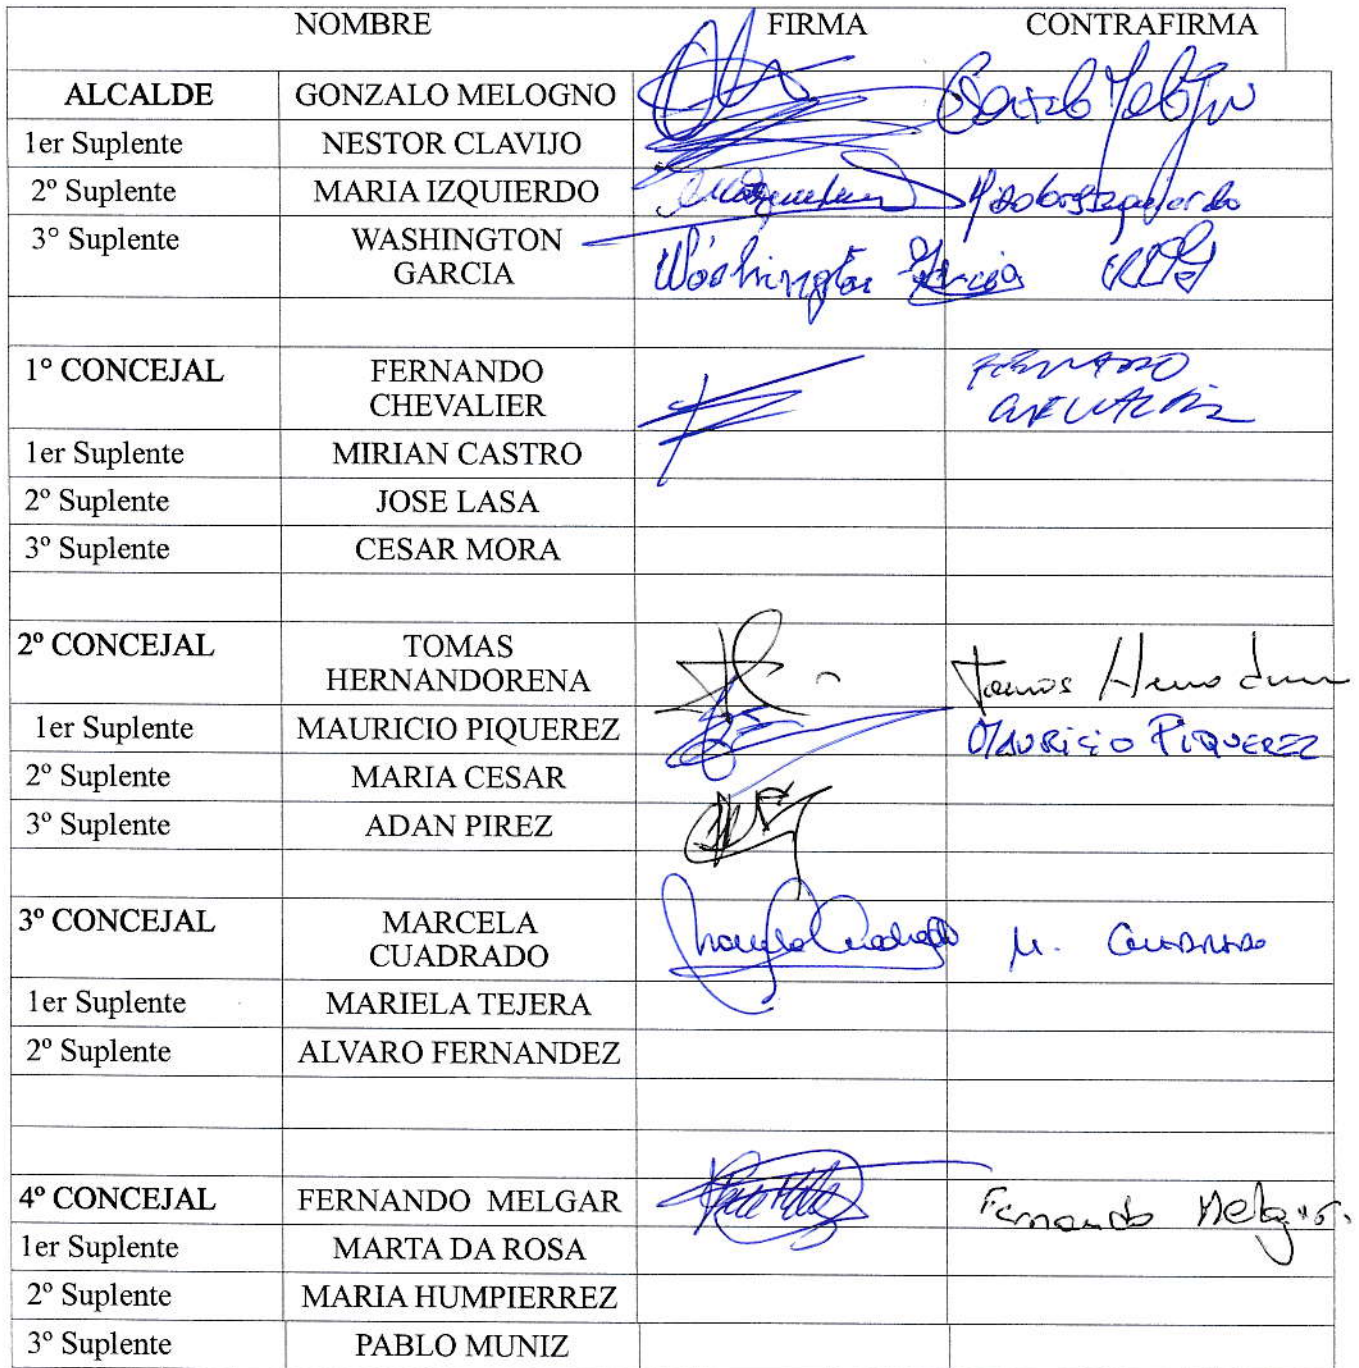 NOMBRE FIRMA CONTRAFIRMA
ALCALDE GONZALO MELOGNO
1er Suplente NESTOR CLAVIJO
2º Suplente MARIA IZQUIERDO
3° Suplente WASHINGTON
GARCIA Washington Garcia
1º CONCEJAL FERNANDO FERNANDO
CHEVALIER
1er Suplente MIRIAN CASTRO
2º Suplente JOSE LASA
3º Suplente CESAR MORA
2º CONCEJAL TOMAS
HERNANDORENA Tomas
1er Suplente MAURICIO PIQUEREZ MAURICIO PIQUEREZ
2º Suplente MARIA CESAR
3º Suplente ADAN PIREZ
3º CONCEJAL MARCELA
CUADRADO Marcela Cuadrado M. CUADRADO
1er Suplente MARIELA TEJERA
2º Suplente ALVARO FERNANDEZ
4º CONCEJAL FERNANDO MELGAR Fernando Melgar.
1er Suplente MARTA DA ROSA
2º Suplente MARIA HUMPIERREZ
3º Suplente PABLO MUNIZ